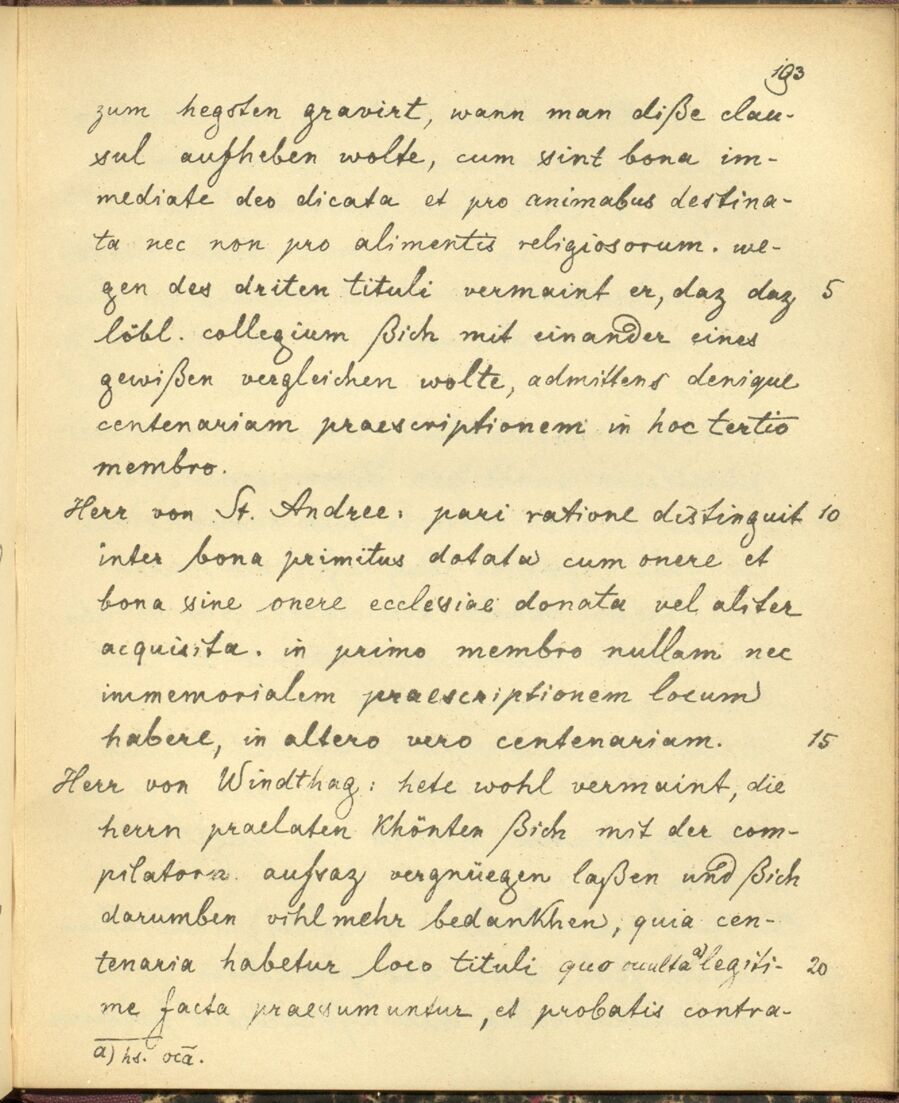 193
zum hegsten gravirt, wann man diße clau-
sul aufheben wolte, cum sint bona im-
mediate deo dicata et pro animabus destina-
ta nec non pro alimentis religiosorum. we-
gen des driten tituli vermaint er, daz daz 5
löbl. collegium ßich mit einander eines
gewißen vergleichen wolte, admittens denique
centenariam praescriptionem in hoc tertio
membro.
Herr von St. Andree: pari ratione distinguit 10
inter bona primitus dotata cum onere et
bona sine onere ecclesiae donata vel aliter
acquisita. in primo membro nullam nec
immemorialem praescriptionem locum
habere, in altero vero centenariam. 15
Herr von Windthag: hete wohl vermaint, die
herrn praelaten khönten ßich mit der com-
pilatorn aufsaz vergnüegen laßen und ßich
darumben vihlmehr bedankhen, quia cen-
tenaria habetur loco tituli quo occulta a) legiti- 20
me facta praesumuntur, et probatis contra-
a) hs. oca̅.